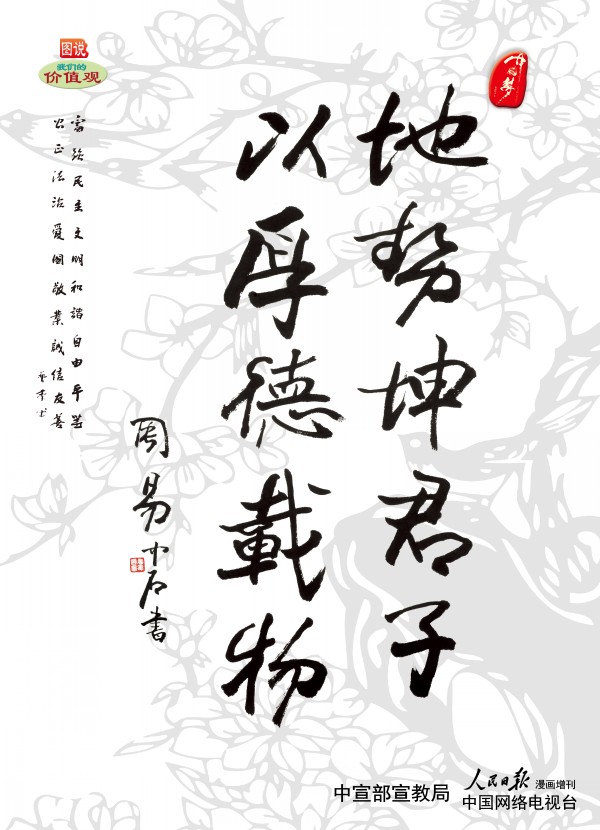 图说
我们的
价值观
中国梦
地势坤君子
以厚德载物
周易中石書
富強民主文明和諧自由平等
公正法治愛國敬業誠信友善
中宣部宣教局
人民日报 漫画增刊
中国网络电视台